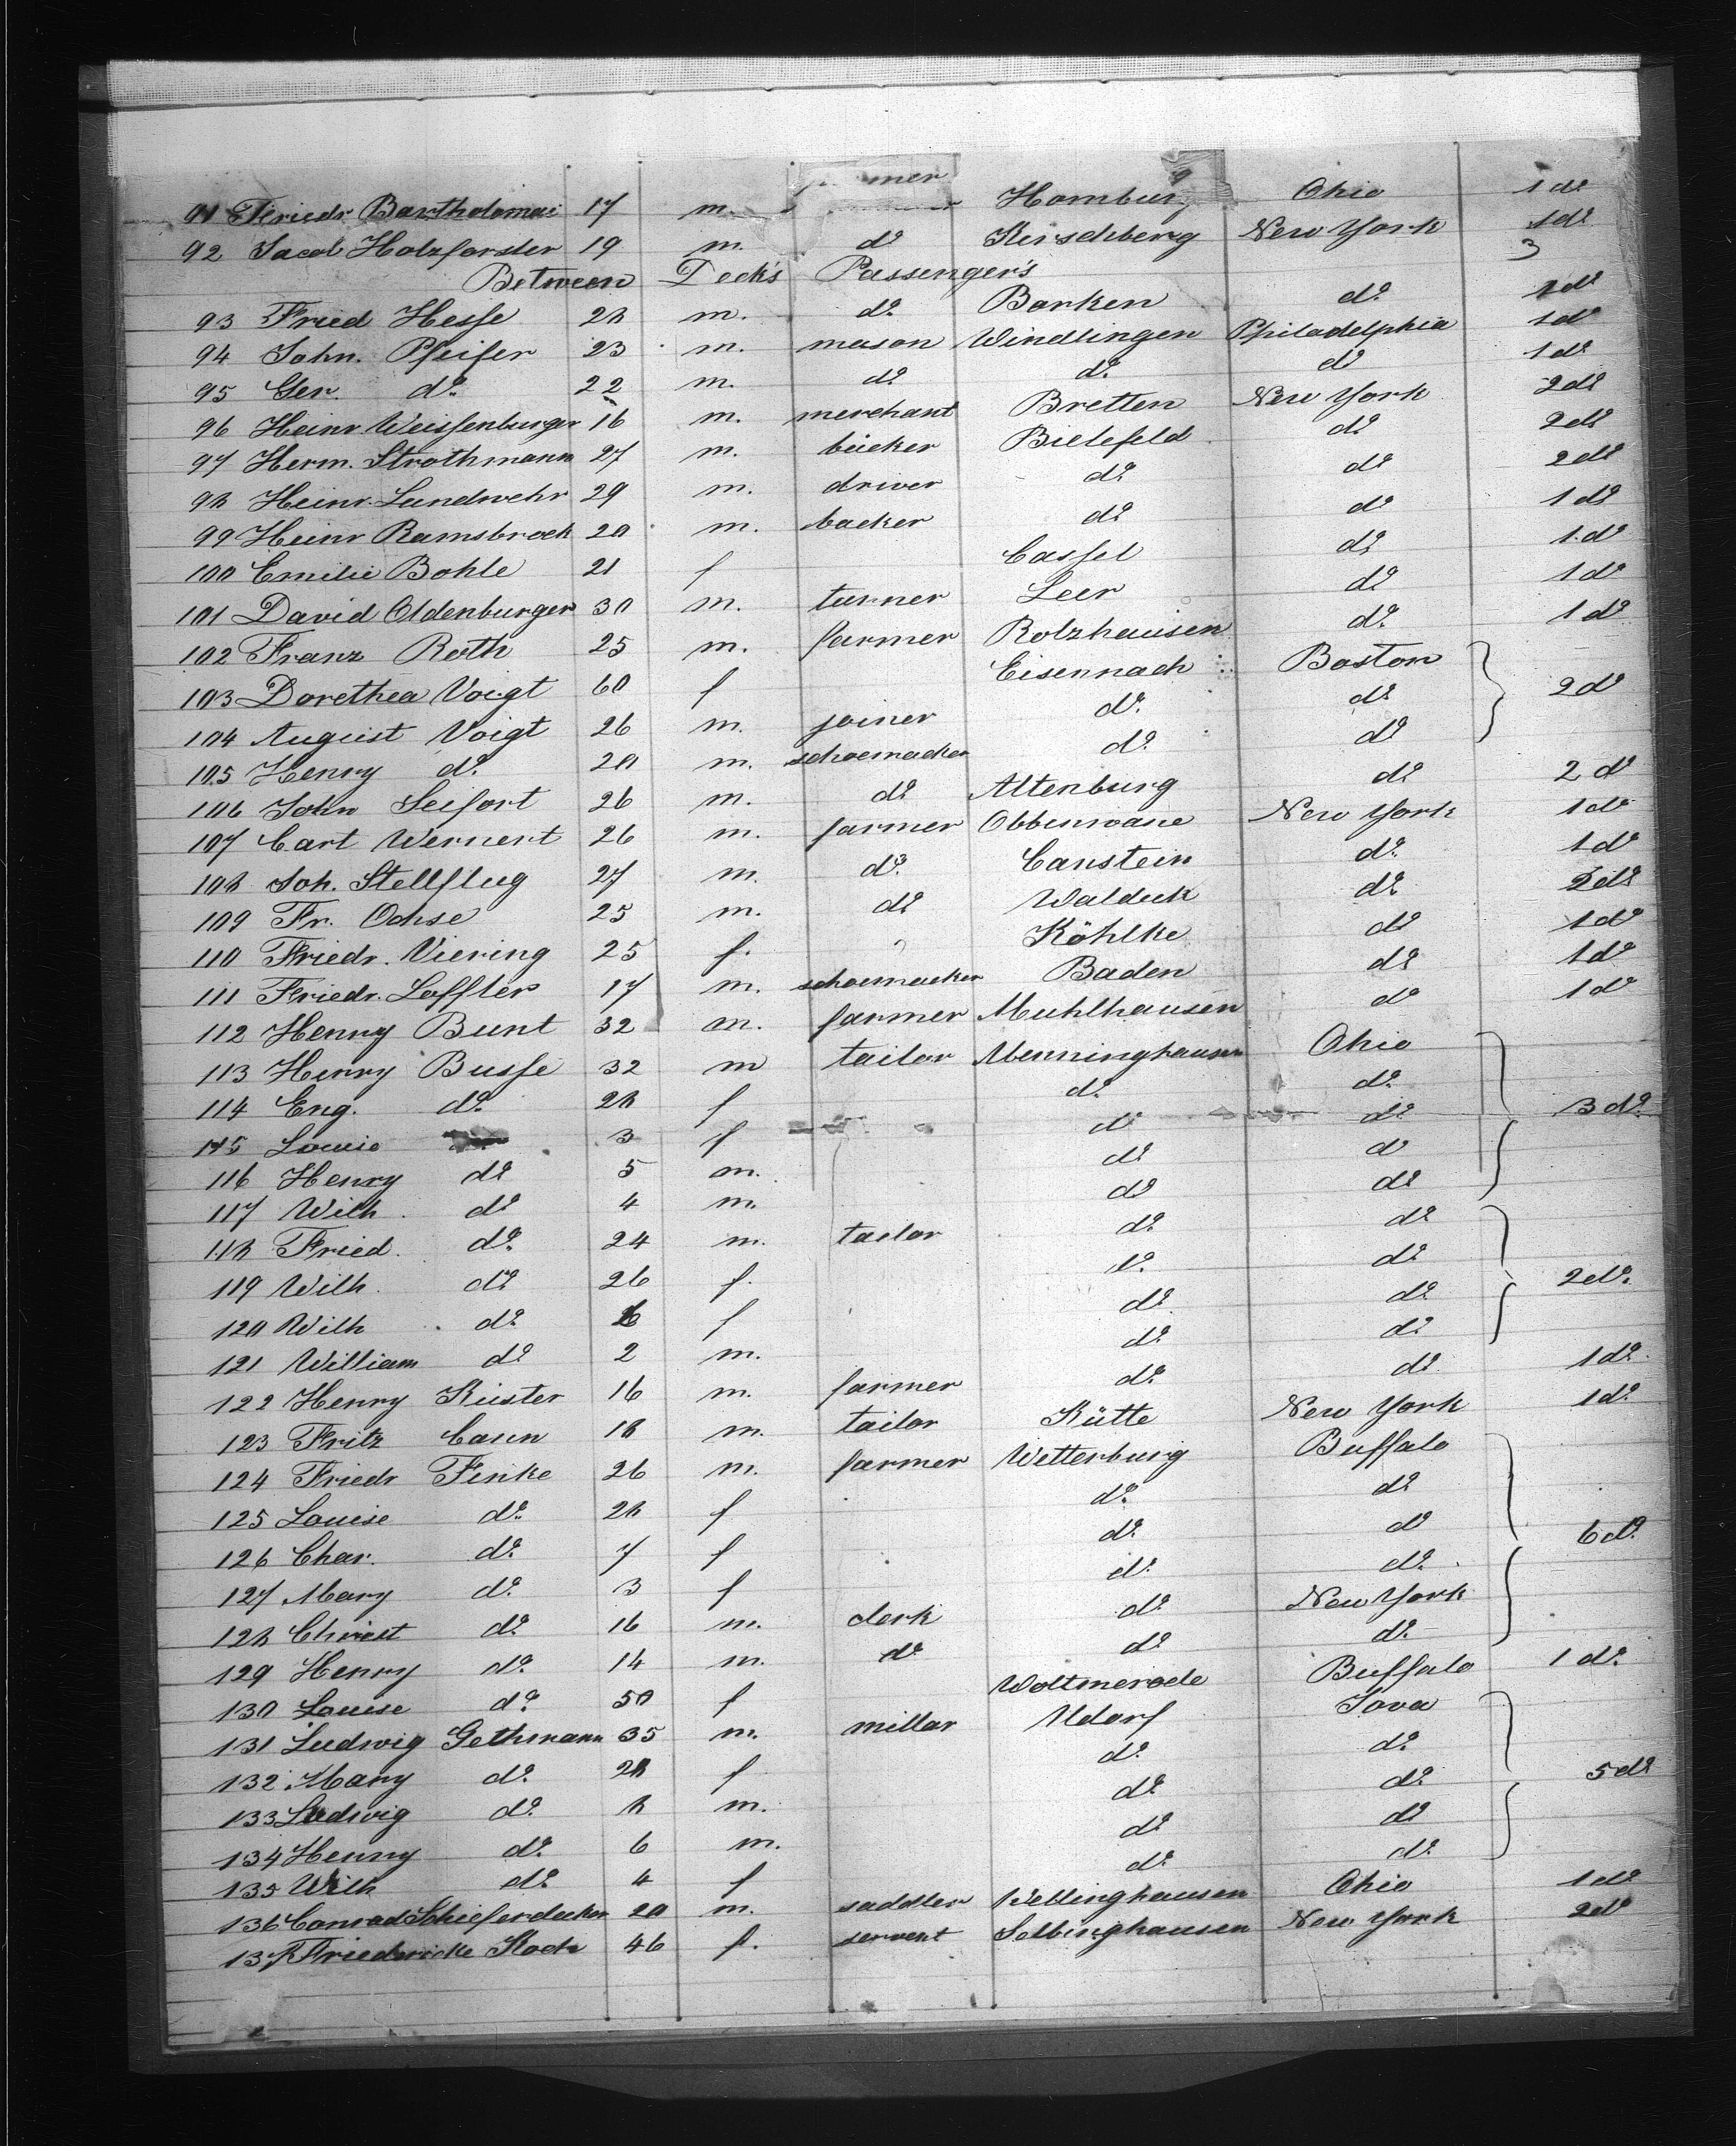 91 Friedr. Bartholomai 17 m. farmer Homburg Ohio 1 do
92 Jacob Holzforster 19 m. do Kirschberg New York 1 do
3
Between Deck's Passenger's
93 Fried Hesse 28 m. do Borken do 1 do
94 John. Pfeifer 23 m. mason Windlingen Philadelphia 1 do
95 Ger. do 22 m. do do do 1 do
96 Heinr. Weissenburger 16 m. merchant Bretten New York 2 do
97 Herm. Strothmann 27 m. bäcker Bielefeld do 2 do
98 Heinr. Landwehr 29 m. driver do do 2 do
99 Heinr Ramsbrock 20 m. backer do do 1 do
100 Emilie Bohle 21 f Cassel do 1 do
101 David Oldenburger 30 m. turner Leer do 1 do
102 Franz Roth 25 m. farmer Rolzhausen do 1 do
103 Dorethea Voigt 60 f Eisennach Boston
104 August Voigt 26 m. joiner do do 2 do
105 Henry do 20 m. schoemacker do do
106 John Seifert 26 m. do Altenburg do 2 do
107 Carl Wernert 26 m. farmer New York 1 do
108 Joh. Stellflug 27 m. do Canstein do 1 do
109 Fr. Ochse 25 m. do Waldeck do 2 do
110 Friedr. Viering 25 f. Köhlke do 1 do
111 Friedr. Loffler 17 m. schoemacker Baden do 1 do
112 Henry Bunt 32 m. farmer Muhlhausen do 1 do
113 Henry Busse 32 m tailor Menninghausen Ohio
114 Eng. do 28 f do do
115 Louise 3 f do do 3 do
116 Henry do 5 m. do do
117 Wilh. do 4 m. do do
118 Fried. do 24 m. tailor do do
119 Wilh. do 26 f. do do
120 Wilh do f do do 2 do
121 William do 2 m. do do
122 Henry Küster 16 m. farmer do do 1 do
123 Fritz Caun 18 m. tailor Kütte New York 1 do
124 Friedr Finke 26 m. farmer Wetterburg Buffalo
125 Louise do 28 f do do
126 Char. do 7 f do do
127 Mary do 3 f do do 6 do
128 Christ do 16 m. clerk do New York
129 Henry do 14 m. do do do
130 Louise do 50 f Woltmerode Buffalo 1 do
131 Ludwig Gethmann 35 m. millar Udorf Iova
132 Mary do 28 f do do
133 Ludwig do 8 m. do do 5 do
134 Henny do 6 m. do do
135 Wilh do 4 f do do
136 Conrad Schieferdecker 20 m. saddler Wellinghausen Ohio 1 do
137 Friedericke Koch 46 f. servent Selbinghausen New York 2 do